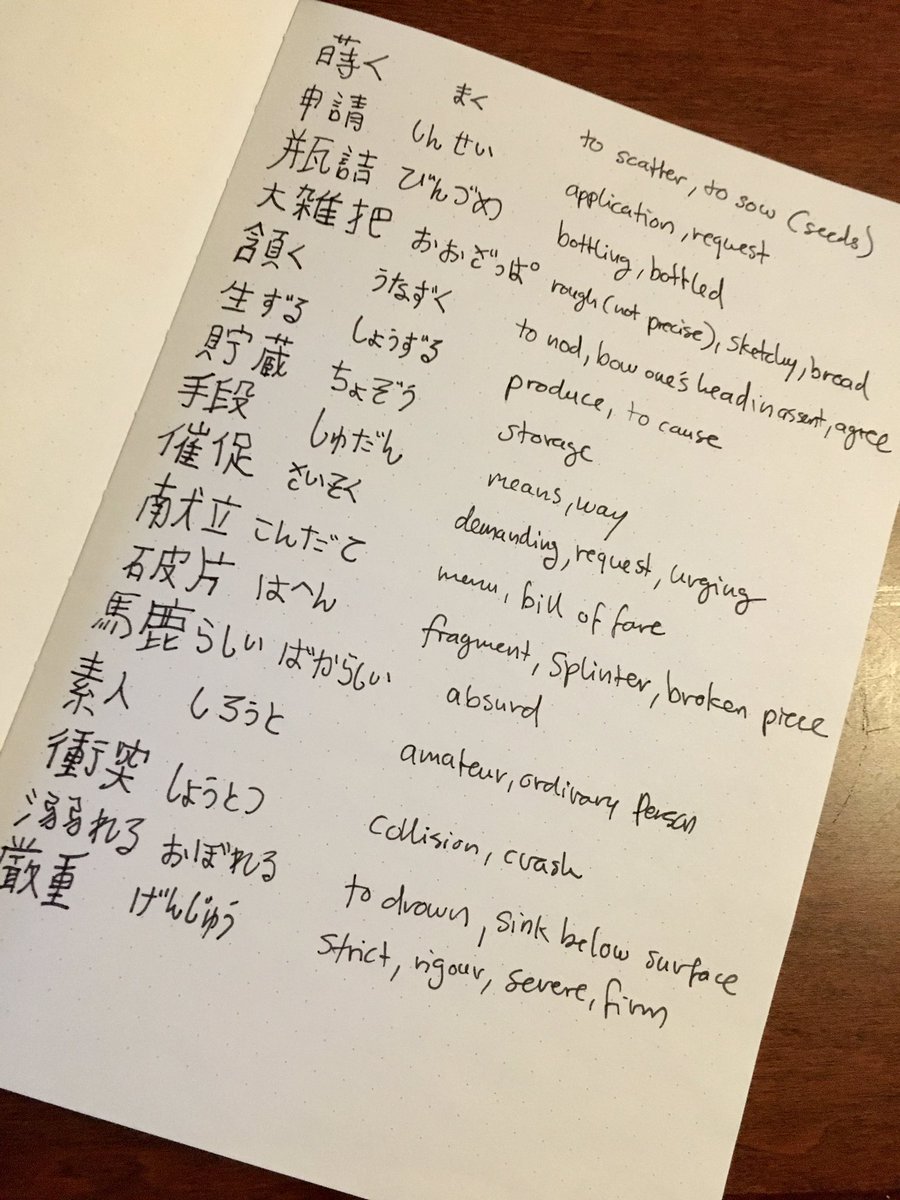 蒔く まく to scatter, to sow (seeds)
申請 しんせい application, request
瓶詰 びんづめ bottling, bottled
大雑把 おおざっぱ rough (not precise), sketchy, broad
頷く うなずく to nod, bow one's head in assent, agree
生ずる しょうずる produce, to cause
貯蔵 ちょぞう storage
手段 しゅだん means, way
催促 さいそく demanding, request, urging
献立 こんだて menu, bill of fare
破片 はへん fragment, splinter, broken piece
馬鹿らしい ばからしい absurd
素人 しろうと amateur, ordinary person
衝突 しょうとつ collision, crash
溺れる おぼれる to drown, sink below surface
厳重 げんじゅう strict, rigour, severe, firm